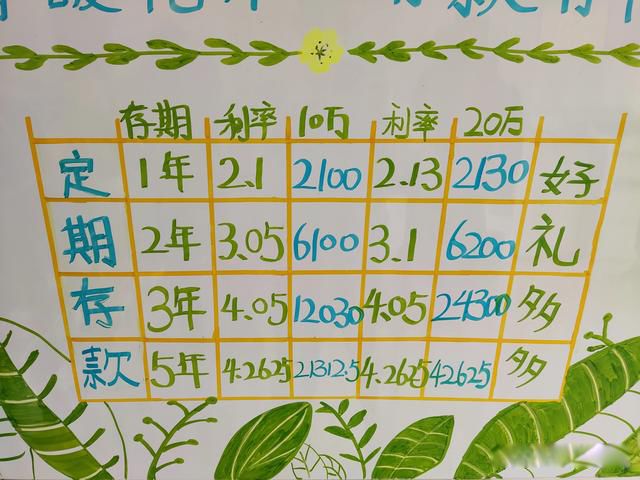 存期 利率 10万 利率 20万
定 1年 2.1 2100 2.13 2130 好
期 2年 3.05 6100 3.1 6200 礼
存 3年 4.05 12030 4.05 24300 多
款 5年 4.2625 21312.5 4.2625 42625 多